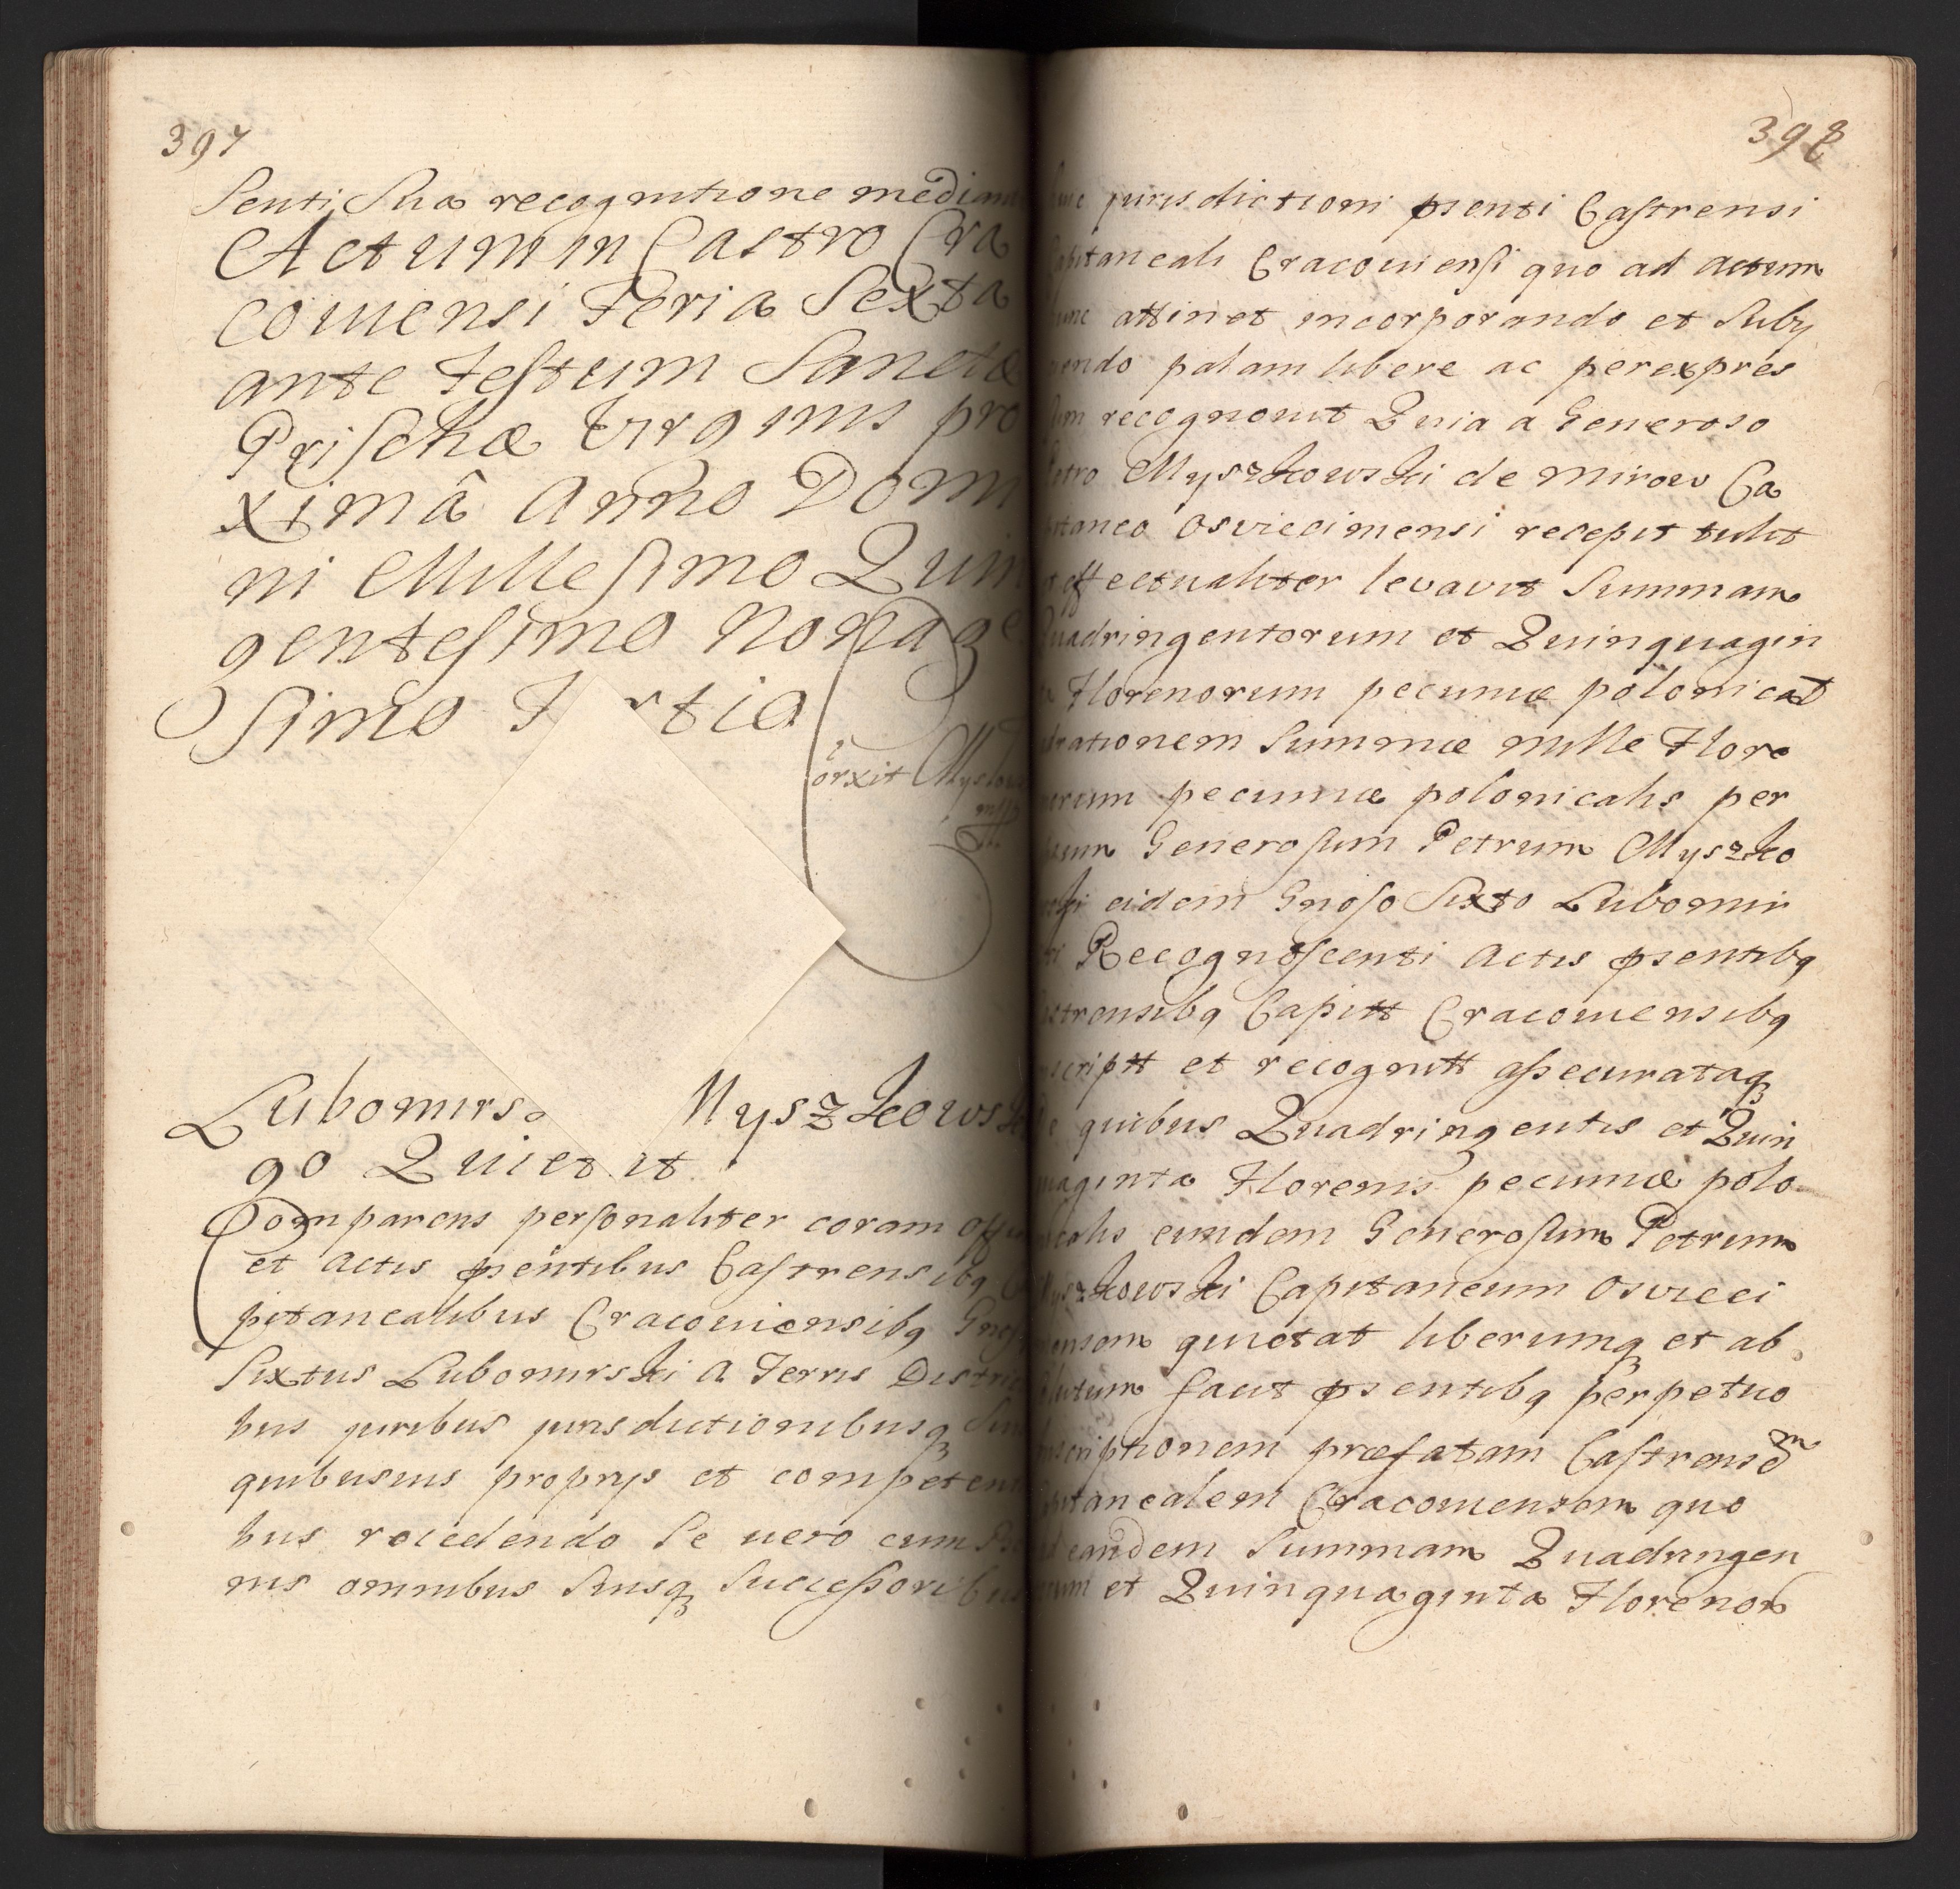 397
senti sua recognitione median
Actum in Castro Cra
couiensi Feria Sexta
ante Festum Sanctæ
Prischæ Virginis pro
ximâ Anno Domi
ni Millesimo Quin
gentesimo Nonage
simo Tertio
Lubomirs Myszkows
go Quietat
Comparens personaliter coram offi
et actis psentibus Castrensibq
pitanealibus Cracouiensibq Gnos
Sixtus Lubomirski a Terris Distric
bus juribus jurisdictionibusq
quibusuis proprys et competen
bus recedendo Se uero cum
nis omnibus Suisq Successoribus
398
jurisdictioni psenti Castrensi
Capitaneali Cracouiensi quo ad actum
hunc attinet incorporando et Suby
ciendo palam libere ac perexpres
sum recognouit Quia a Generoso
Petro Myszkowski de Mirow Ca
pitaneo Osviecimensi recepit tulit
et effectualiter levavit Summam
Quadringentorum et Quinquagin
ta Florenorum pecuniæ polonicat
rationem Summæ mille Flore
norum pecuniæ polonicalis per
eum Generosum Petrum Myszko
wski eidem Gnoso Sixto Lubomir
ski Recognoscenti Actis psentibq
Castrensibq Capitt Cracouiensibq
inscriptt et recognitt assecurataq
De quibus Quadringentis et Quin
quaginta Florenis pecuniæ polo
nicalis eundem Generosum Petrum
Myszkowski Capitaneum Osvieci
mensem quietat liberumq et ab
solutum facit psentibq perpetuo
Inscriptionem præfatam Castrensem
Capitanealem Cracouiensem quo
ad eandem Summam Quadringen
torum et Quinquaginta Florenor